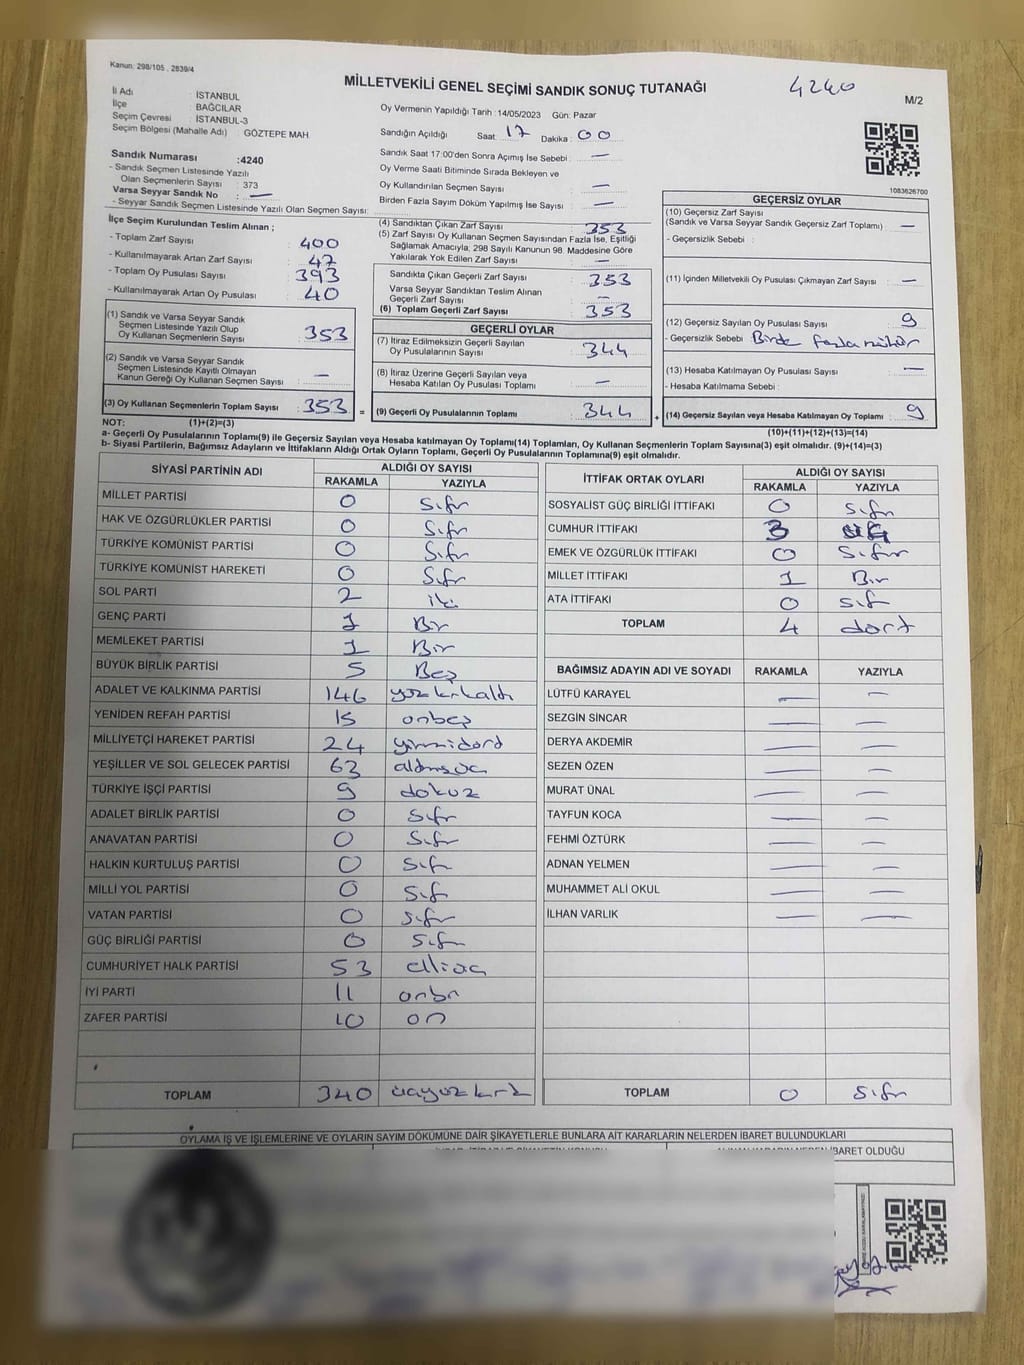 Kanun: 298/105 , 2839/4
MİLLETVEKİLİ GENEL SEÇİMİ SANDIK SONUÇ TUTANAĞI
4240
M/2
İl Adı : İSTANBUL
İlçe : BAĞCILAR
Seçim Çevresi : İSTANBUL-3
Seçim Bölgesi (Mahalle Adı) : GÖZTEPE MAH
Sandık Numarası :4240
- Sandık Seçmen Listesinde Yazılı
Olan Seçmenlerin Sayısı : 373
Varsa Seyyar Sandık No : —
- Seyyar Sandık Seçmen Listesinde Yazılı Olan Seçmen Sayısı:
Oy Vermenin Yapıldığı Tarih : 14/05/2023 Gün: Pazar
Sandığın Açıldığı Saat : 17 Dakika : 00
Sandık Saat 17:00'den Sonra Açımış İse Sebebi : —
Oy Verme Saati Bitiminde Sırada Bekleyen ve
Oy Kullandırılan Seçmen Sayısı : —
Birden Fazla Sayım Döküm Yapılmış İse Sayısı : —
1083626700
İlçe Seçim Kurulundan Teslim Alınan ;
- Toplam Zarf Sayısı : 400
- Kullanılmayarak Artan Zarf Sayısı : 47
- Toplam Oy Pusulası Sayısı : 393
- Kullanılmayarak Artan Oy Pusulası : 40
(1) Sandık ve Varsa Seyyar Sandık
Seçmen Listesinde Yazılı Olup
Oy Kullanan Seçmenlerin Sayısı : 353
(2) Sandık ve Varsa Seyyar Sandık
Seçmen Listesinde Kayıtlı Olmayan
Kanun Gereği Oy Kullanan Seçmen Sayısı : —
(3) Oy Kullanan Seçmenlerin Toplam Sayısı : 353 =
(4) Sandıktan Çıkan Zarf Sayısı : 353
(5) Zarf Sayısı Oy Kullanan Seçmen Sayısından Fazla İse, Eşitliği
Sağlamak Amacıyla, 298 Sayılı Kanunun 98. Maddesine Göre
Yakılarak Yok Edilen Zarf Sayısı : —
Sandıkta Çıkan Geçerli Zarf Sayısı : 353
Varsa Seyyar Sandıktan Teslim Alınan
Geçerli Zarf Sayısı : —
(6) Toplam Geçerli Zarf Sayısı : 353
GEÇERLİ OYLAR
(7) İtiraz Edilmeksizin Geçerli Sayılan
Oy Pusulalarının Sayısı : 344
(8) İtiraz Üzerine Geçerli Sayılan veya
Hesaba Katılan Oy Pusulası Toplamı : —
(9) Geçerli Oy Pusulalarının Toplamı : 344 +
GEÇERSİZ OYLAR
(10) Geçersiz Zarf Sayısı
(Sandık ve Varsa Seyyar Sandık Geçersiz Zarf Toplamı) : —
- Geçersizlik Sebebi :
(11) İçinden Milletvekili Oy Pusulası Çıkmayan Zarf Sayısı : —
(12) Geçersiz Sayılan Oy Pusulası Sayısı : 9
- Geçersizlik Sebebi : Birde fazla mühür
(13) Hesaba Katılmayan Oy Pusulası Sayısı : —
- Hesaba Katılmama Sebebi :
(14) Geçersiz Sayılan veya Hesaba Katılmayan Oy Toplamı : 9
NOT: (1)+(2)=(3) (10)+(11)+(12)+(13)=(14)
a- Geçerli Oy Pusulalarının Toplamı(9) ile Geçersiz Sayılan veya Hesaba katılmayan Oy Toplamı(14) Toplamları, Oy Kullanan Seçmenlerin Toplam Sayısına(3) eşit olmalıdır. (9)+(14)=(3)
b- Siyasi Partilerin, Bağımsız Adayların ve İttifakların Aldığı Ortak Oyların Toplamı, Geçerli Oy Pusulalarının Toplamına(9) eşit olmalıdır.
SİYASİ PARTİNİN ADI ALDIĞI OY SAYISI
RAKAMLA YAZIYLA
MİLLET PARTİSİ 0 Sıfır
HAK VE ÖZGÜRLÜKLER PARTİSİ 0 Sıfr
TÜRKİYE KOMÜNİST PARTİSİ 0 Sıfr
TÜRKİYE KOMÜNİST HAREKETİ 0 Sıfr
SOL PARTİ 2 iki
GENÇ PARTİ 1 Bir
MEMLEKET PARTİSİ 1 Bir
BÜYÜK BİRLİK PARTİSİ 5 Beş
ADALET VE KALKINMA PARTİSİ 146 yüzkırkaltı
YENİDEN REFAH PARTİSİ 15 onbeş
MİLLİYETÇİ HAREKET PARTİSİ 24 yirmidört
YEŞİLLER VE SOL GELECEK PARTİSİ 63 altmışüç
TÜRKİYE İŞÇİ PARTİSİ 9 dokuz
ADALET BİRLİK PARTİSİ 0 Sıfr
ANAVATAN PARTİSİ 0 Sıfr
HALKIN KURTULUŞ PARTİSİ 0 Sıfr
MİLLİ YOL PARTİSİ 0 Sıfr
VATAN PARTİSİ 0 Sıfr
GÜÇ BİRLİĞİ PARTİSİ 0 Sıfr
CUMHURİYET HALK PARTİSİ 53 elliüç
İYİ PARTİ 11 onbir
ZAFER PARTİSİ 10 on
TOPLAM 340 üçyüzkırk
İTTİFAK ORTAK OYLARI ALDIĞI OY SAYISI
RAKAMLA YAZIYLA
SOSYALİST GÜÇ BİRLİĞİ İTTİFAKI 0 Sıfr
CUMHUR İTTİFAKI 3
EMEK VE ÖZGÜRLÜK İTTİFAKI 0 Sıfır
MİLLET İTTİFAKI 1 Bir
ATA İTTİFAKI 0 Sıfr
TOPLAM 4 dört
BAĞIMSIZ ADAYIN ADI VE SOYADI RAKAMLA YAZIYLA
LÜTFÜ KARAYEL — —
SEZGİN SİNCAR — —
DERYA AKDEMİR — —
SEZEN ÖZEN — —
MURAT ÜNAL — —
TAYFUN KOCA — —
FEHMİ ÖZTÜRK — —
ADNAN YELMEN — —
MUHAMMET ALİ OKUL — —
İLHAN VARLIK — —
TOPLAM 0 Sıfır
OYLAMA İŞ VE İŞLEMLERİNE VE OYLARIN SAYIM DÖKÜMÜNE DAİR ŞİKAYETLERLE BUNLARA AİT KARARLARIN NELERDEN İBARET BULUNDUKLARI
İBARET OLDUĞU